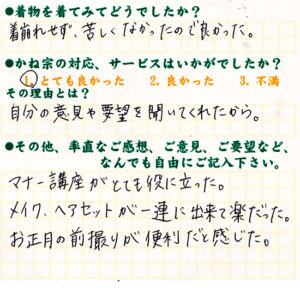 ●着物を着てみてどうでしたか?
着崩れせず、苦しくなかったので良かった。
●かね宗の対応、サービスはいかがでしたか?
1. とても良かった 2. 良かった 3. 不満
その理由とは?
自分の意見や要望を聞いてくれたから。
●その他、率直なご感想、ご意見、ご要望など、
なんでも自由にご記入下さい。
マナー講座がとても役に立った。
メイク、ヘアセットが一連に出来て楽だった。
お正月の前撮りが便利だと感じた。